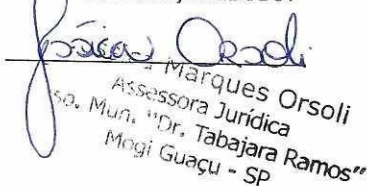 Orsoli
Marques Orsoli
Assessora Jurídica
Mun. "Dr. Tabajara Ramos"
Mogi Guaçu - SP